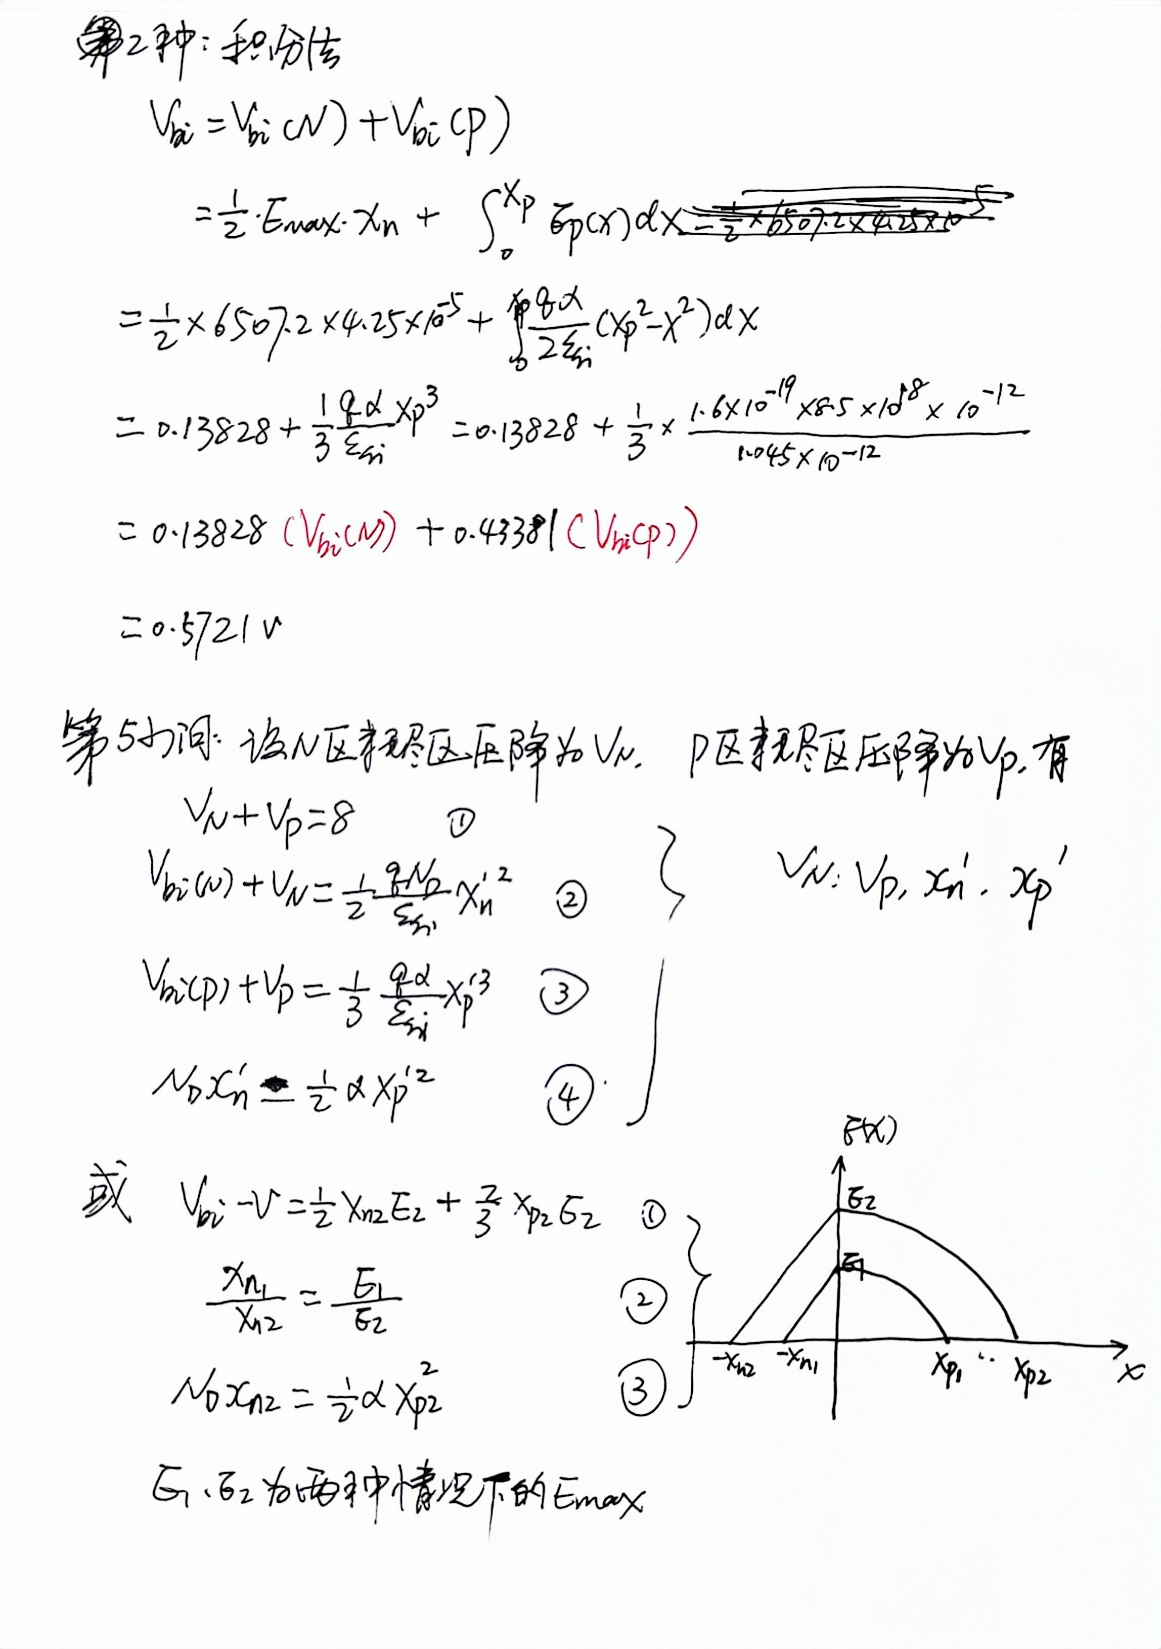 第2种:积分法
Vbi = Vbi(N) + Vbi(P)
= 1/2·Emax·xn + ∫₀^xp Ep(x)dx
= 1/2 × 6507.2 × 4.25×10⁻⁵ + ∫₀^xp qα/2εsi (xp²-x²)dx
= 0.13828 + 1/3 qα/εsi xp³ = 0.13828 + 1/3 × 1.6×10⁻¹⁹ × 8.5 × 10¹⁸ × 10⁻¹² / 1.045×10⁻¹²
= 0.13828 (Vbi(N)) + 0.43381 (Vbi(P))
= 0.5721 V
第5小问: 设N区耗尽区压降为VN, P区耗尽区压降为Vp, 有
VN + Vp = 8 ①
Vbi(N) + VN = 1/2 qND/εsi xn'² ②
VN, Vp, xn', xp'
Vbi(P) + Vp = 1/3 qα/εsi xp'³ ③
NDxn' = 1/2 αxp'² ④
或 Vbi - V = 1/2 xn2E2 + 2/3 xp2E2 ①
xn1/xn2 = E1/E2 ②
NDxn2 = 1/2 αxp2² ③
E(x)
E2
E1
-xn2 -xn1 xp1 xp2 x
E1、E2为两种情况下的Emax